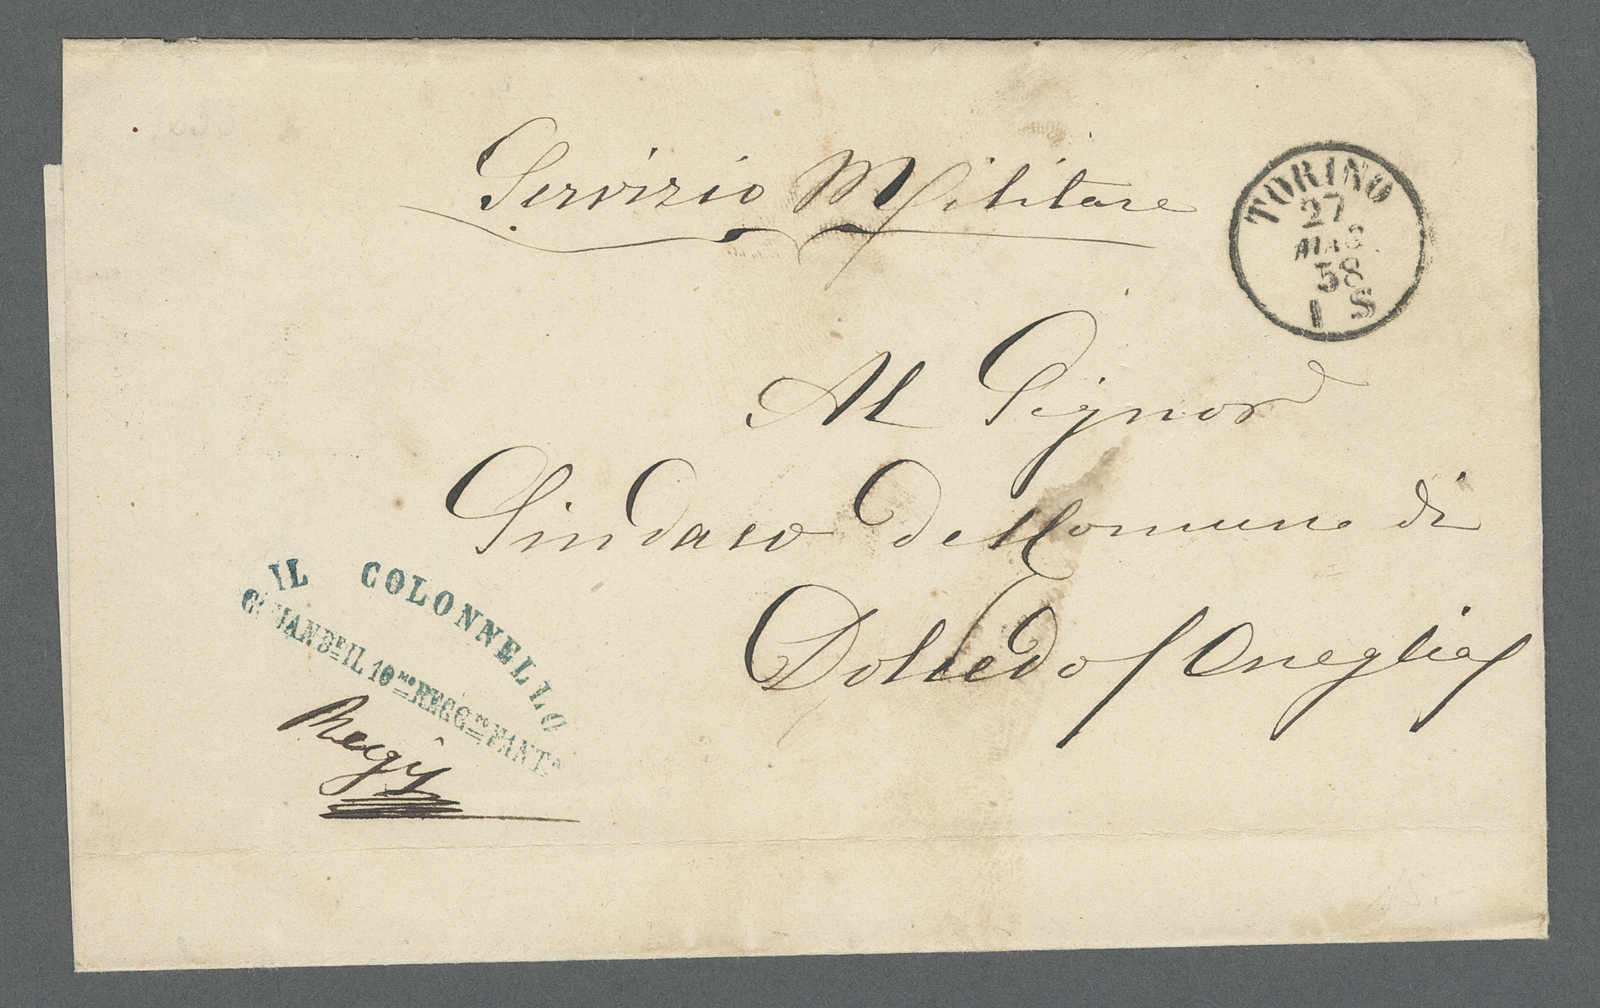 Servizio Militare
TORINO
27
MAG
58
1 S
Al Signor
Sindaco del Comune di
Dolcedo / Oneglia /
IL COLONNELLO
COMAND.TE IL 10.MO REGG.TO FANT.A